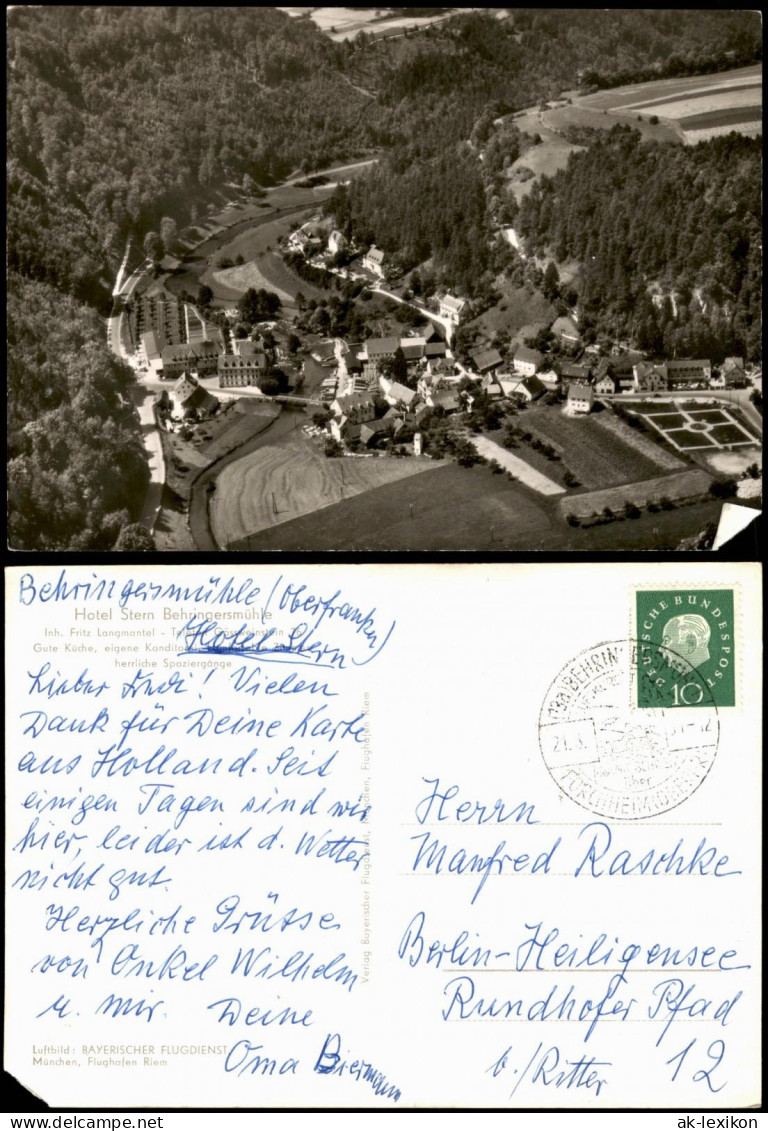 Behringersmühle (Oberfranken)
Hotel Stern Behringersmühle
Inh. Fritz Langmantel -
Hotel Stern
Gute Küche, eigene
herrliche Spaziergänge
Lieber Fredi! Vielen
Dank für Deine Karte
aus Holland. Seit
einigen Tagen sind wir
hier, leider ist d. Wetter
nicht gut.
Herzliche Grüsse
von Onkel Wilhelm
u. mir. Deine
Oma Biermann
Luftbild: BAYERISCHER FLUGDIENST
München, Flughafen Riem
Verlag Bayerischer Flugdienst, München, Flughafen Riem
DEUTSCHE BUNDESPOST
10
(13a) BEHRINGERSMÜHLE
21.8. 61-12
über
FORCHHEIM (OBERFR)
Herrn
Manfred Raschke
Berlin-Heiligensee
Rundhofer Pfad
b./Ritter 12
ak-lexikon.com